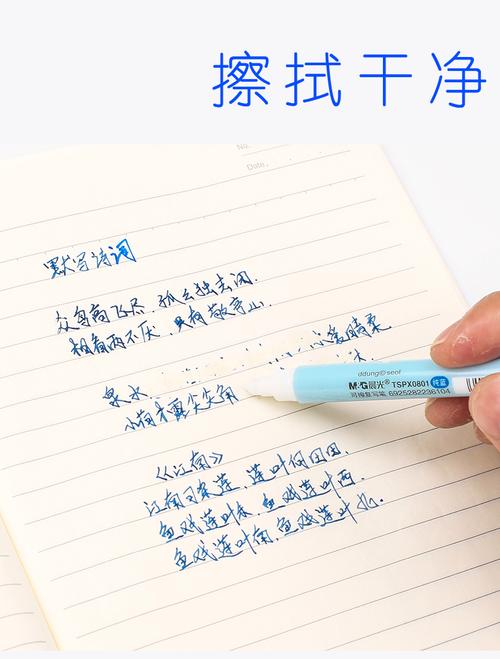 擦拭干净
No.
Date.
默写诗词
众鸟高飞尽,孤云独去闲.
相看两不厌,只有敬亭山.
泉水 爱晴柔
小荷才露尖尖角
ddung@seof
M&G晨光 TSPX0801 纯蓝
可擦复写笔 6925282236104
《江南》
江南可采莲,莲叶何田田,
鱼戏莲叶东,鱼戏莲叶西
鱼戏莲叶南,鱼戏莲叶北.